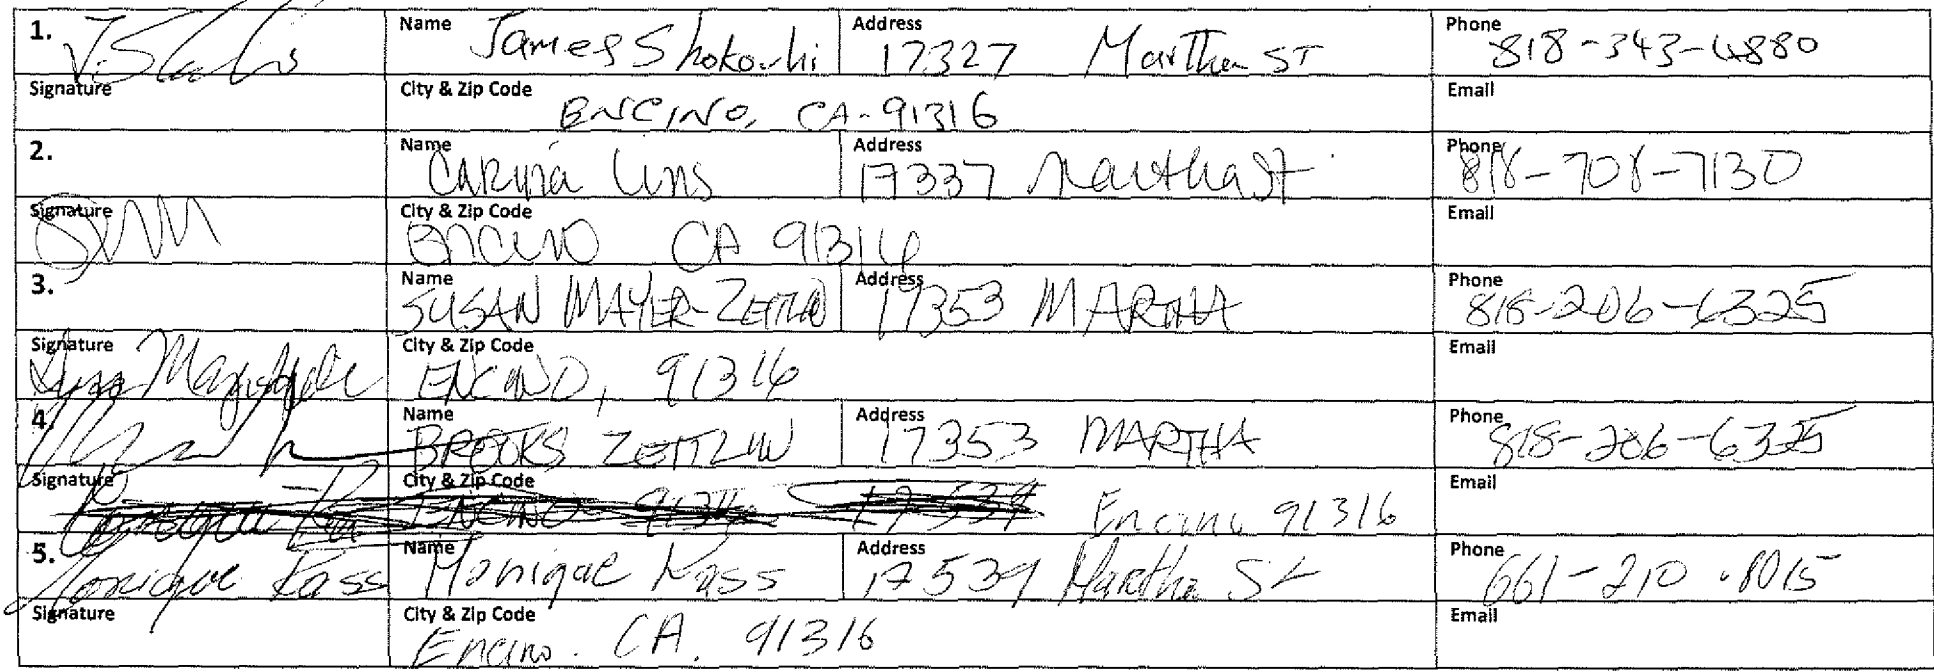 1. Name James Shokouhi Address 17327 Martha ST Phone 818-343-4880
Signature City & Zip Code ENCINO, CA-91316 Email
2. Name Address 17337 Martha St Phone 818-708-7130
Signature City & Zip Code ENCINO CA 91316 Email
3. Name SUSAN MAYER-ZEITLIN Address 17353 MARTHA Phone 818-206-6325
Signature City & Zip Code ENCINO, 91316 Email
4. Name BROOKS ZEITLIN Address 17353 MARTHA Phone 818-206-6325
Signature City & Zip Code Encino 91316 Email
5. Monique Kass Name Monique Kass Address 17539 Martha St Phone 661-210-8015
Signature City & Zip Code Encino. CA. 91316 Email